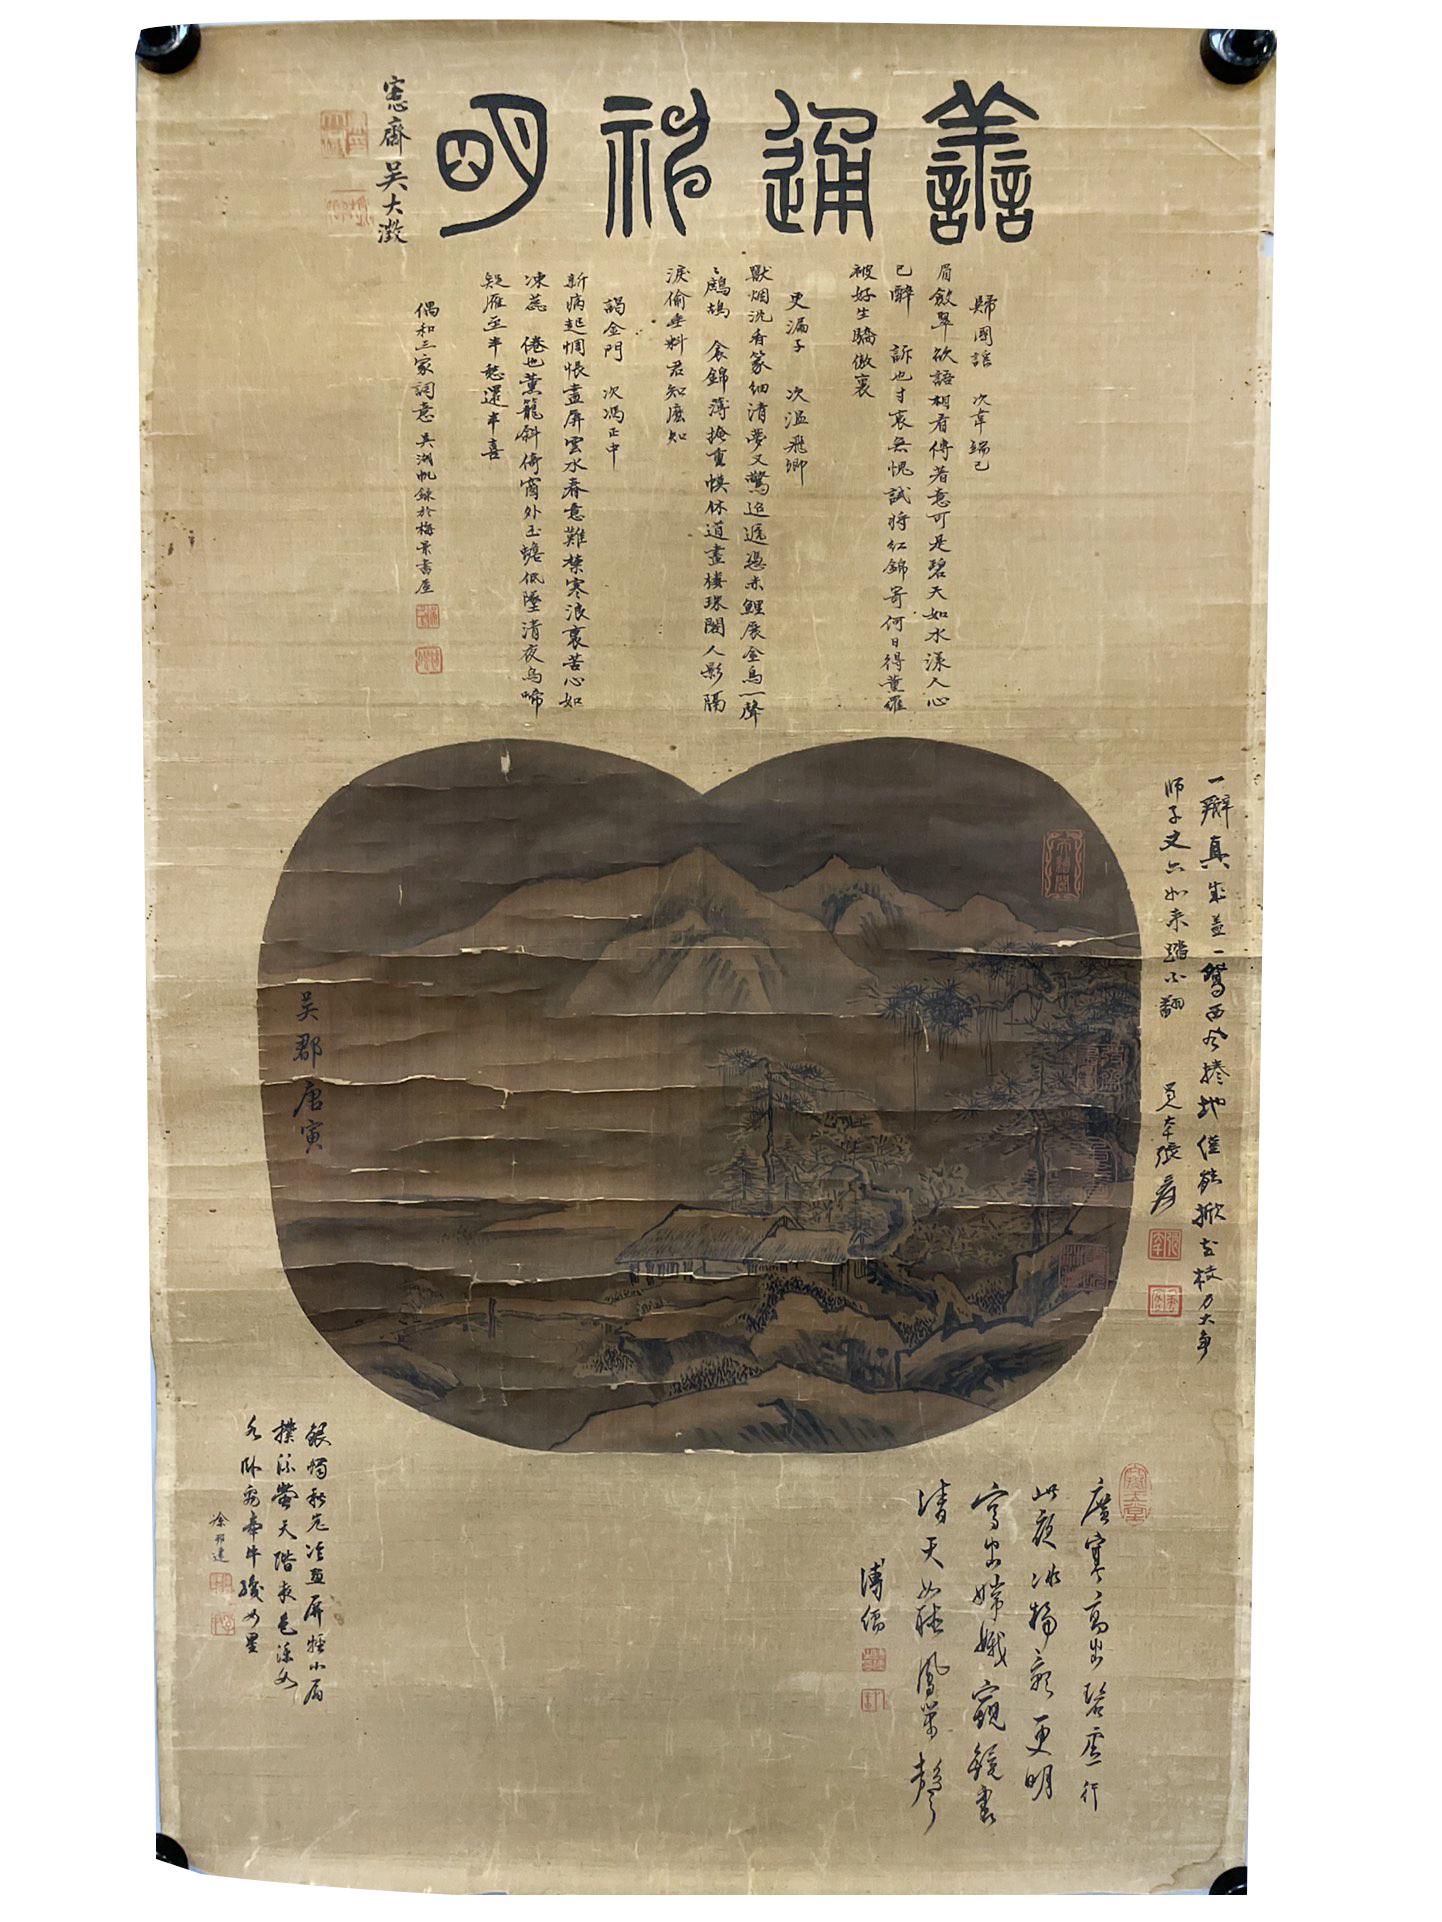 善通神明
愙齋吳大澂
歸國謠　次韋端己
眉斂翠欲語相看傳著意可是碧天如水漾人心
已醉　訴也寸衷無愧試將紅錦寄何日得薰羅
被好生驕傲裏
更漏子　次溫飛卿
獸烟沈香篆細清夢又驚迢遞憑赤鯉展金烏一聲
聲鷓鴣　衾錦薄掩重幙休道畫樓珠閣人影隔
淚偷垂料君知麼知
謁金門　次馮正中
新病起惆悵畫屏雲水春意難禁寒浪裏苦心如
凍蕊　倦也薰籠斜倚窗外玉蟾低墜清夜烏啼
疑雁至半愁還半喜
偶和三家詞意吳湖帆錄於梅景書屋
吳郡唐寅
一瓣真成蓋一鴛西風捲地僅能掀花枝力大爭
師子文六如來踏不翻
爰本張爰
廣寒高出碧虛行
此夜冰輪影更明
寫出嫦娥窺鏡裏
清天如聽鳳笙聲
溥儒
銀燭秋光冷畫屏輕小扇
撲流螢天階夜色涼如
水臥看牽牛織女星
徐邦達